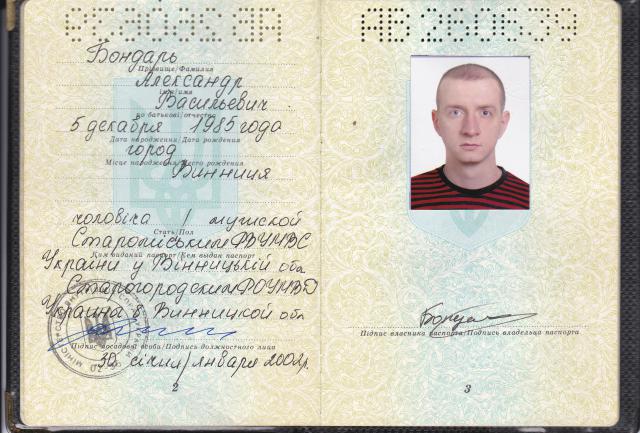 Бондарь
Прізвище/Фамилия
Александр
ім'я/имя
Васильевич
по батькові/отчество
5 декабря 1985 года
Дата народження/Дата рождения
город
Місце народження/Место рождения
Винниця
чоловіча / мужской
Стать/Пол
Староміським РВУМВС
Ким виданий паспорт/Кем выдан паспорт
України у Вінницькій обл
Старогородским РОУМВД
Украины в Винницкой обл
Підпис посадової особи/Подпись должностного лица
30 січня/января 2002г.
2
Підпис власника паспорта/Подпись владельца паспорта
3